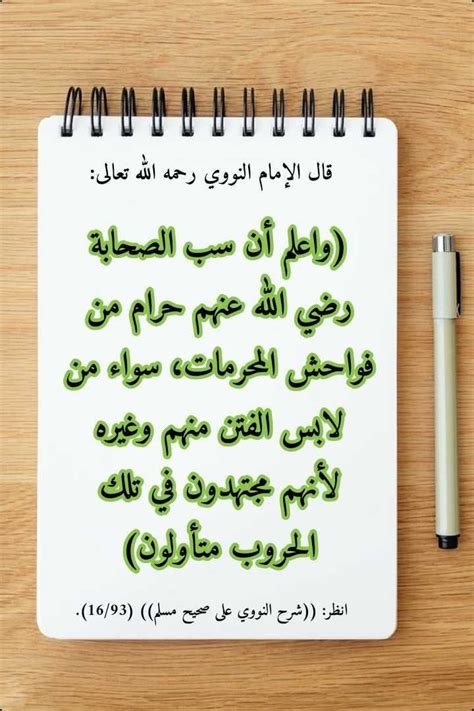 قال الإمام النووي رحمه الله تعالى:
(واعلم أن سب الصحابة
رضي الله عنهم حرام من
فواحش المحرمات، سواء من
لابس الفتن منهم وغيره
لأنهم مجتهدون في تلك
الحروب متأولون)
انظر: ((شرح النووي على صحيح مسلم)) (16/93).